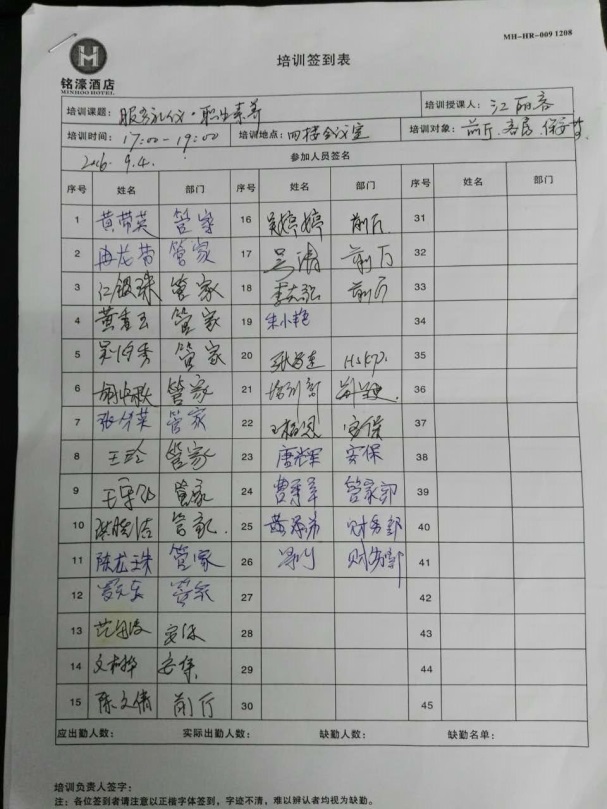 MH-HR-009 1208
铭濠酒店
MINHOO HOTEL
培训签到表
培训课题： 服务礼仪·职业素养 培训授课人： 江丽容
培训时间： 17:00-19:00 培训地点： 四楼会议室 培训对象： 前厅.客房.保安等
2016. 9.4. 参加人员签名
序号 姓名 部门 序号 姓名 部门 序号 姓名 部门
1 黄带英 管家 16 吴婷婷 前厅 31
2 冉龙菊 管家 17 吴清 前厅 32
3 江银珠 管家 18 前厅 33
4 黄香玉 管家 19 朱小艳 34
5 管家 20 HSKP. 35
6 管家 21 36
7 张华英 管家 22 安保 37
8 王玲 管家 23 唐辉 安保 38
9 管家 24 曹军军 管家部 39
10 管家. 25 财务部 40
11 陈龙珠 管家 26 财务部 41
12 管家 27 42
13 安保 28 43
14 安保 29 44
15 陈文倩 前厅 30 45
应出勤人数： 实际出勤人数： 缺勤人数： 缺勤名单：
培训负责人签字：
注：各位签到者请注意以正楷字体签到，字迹不清，难以辨认者均视为缺勤。